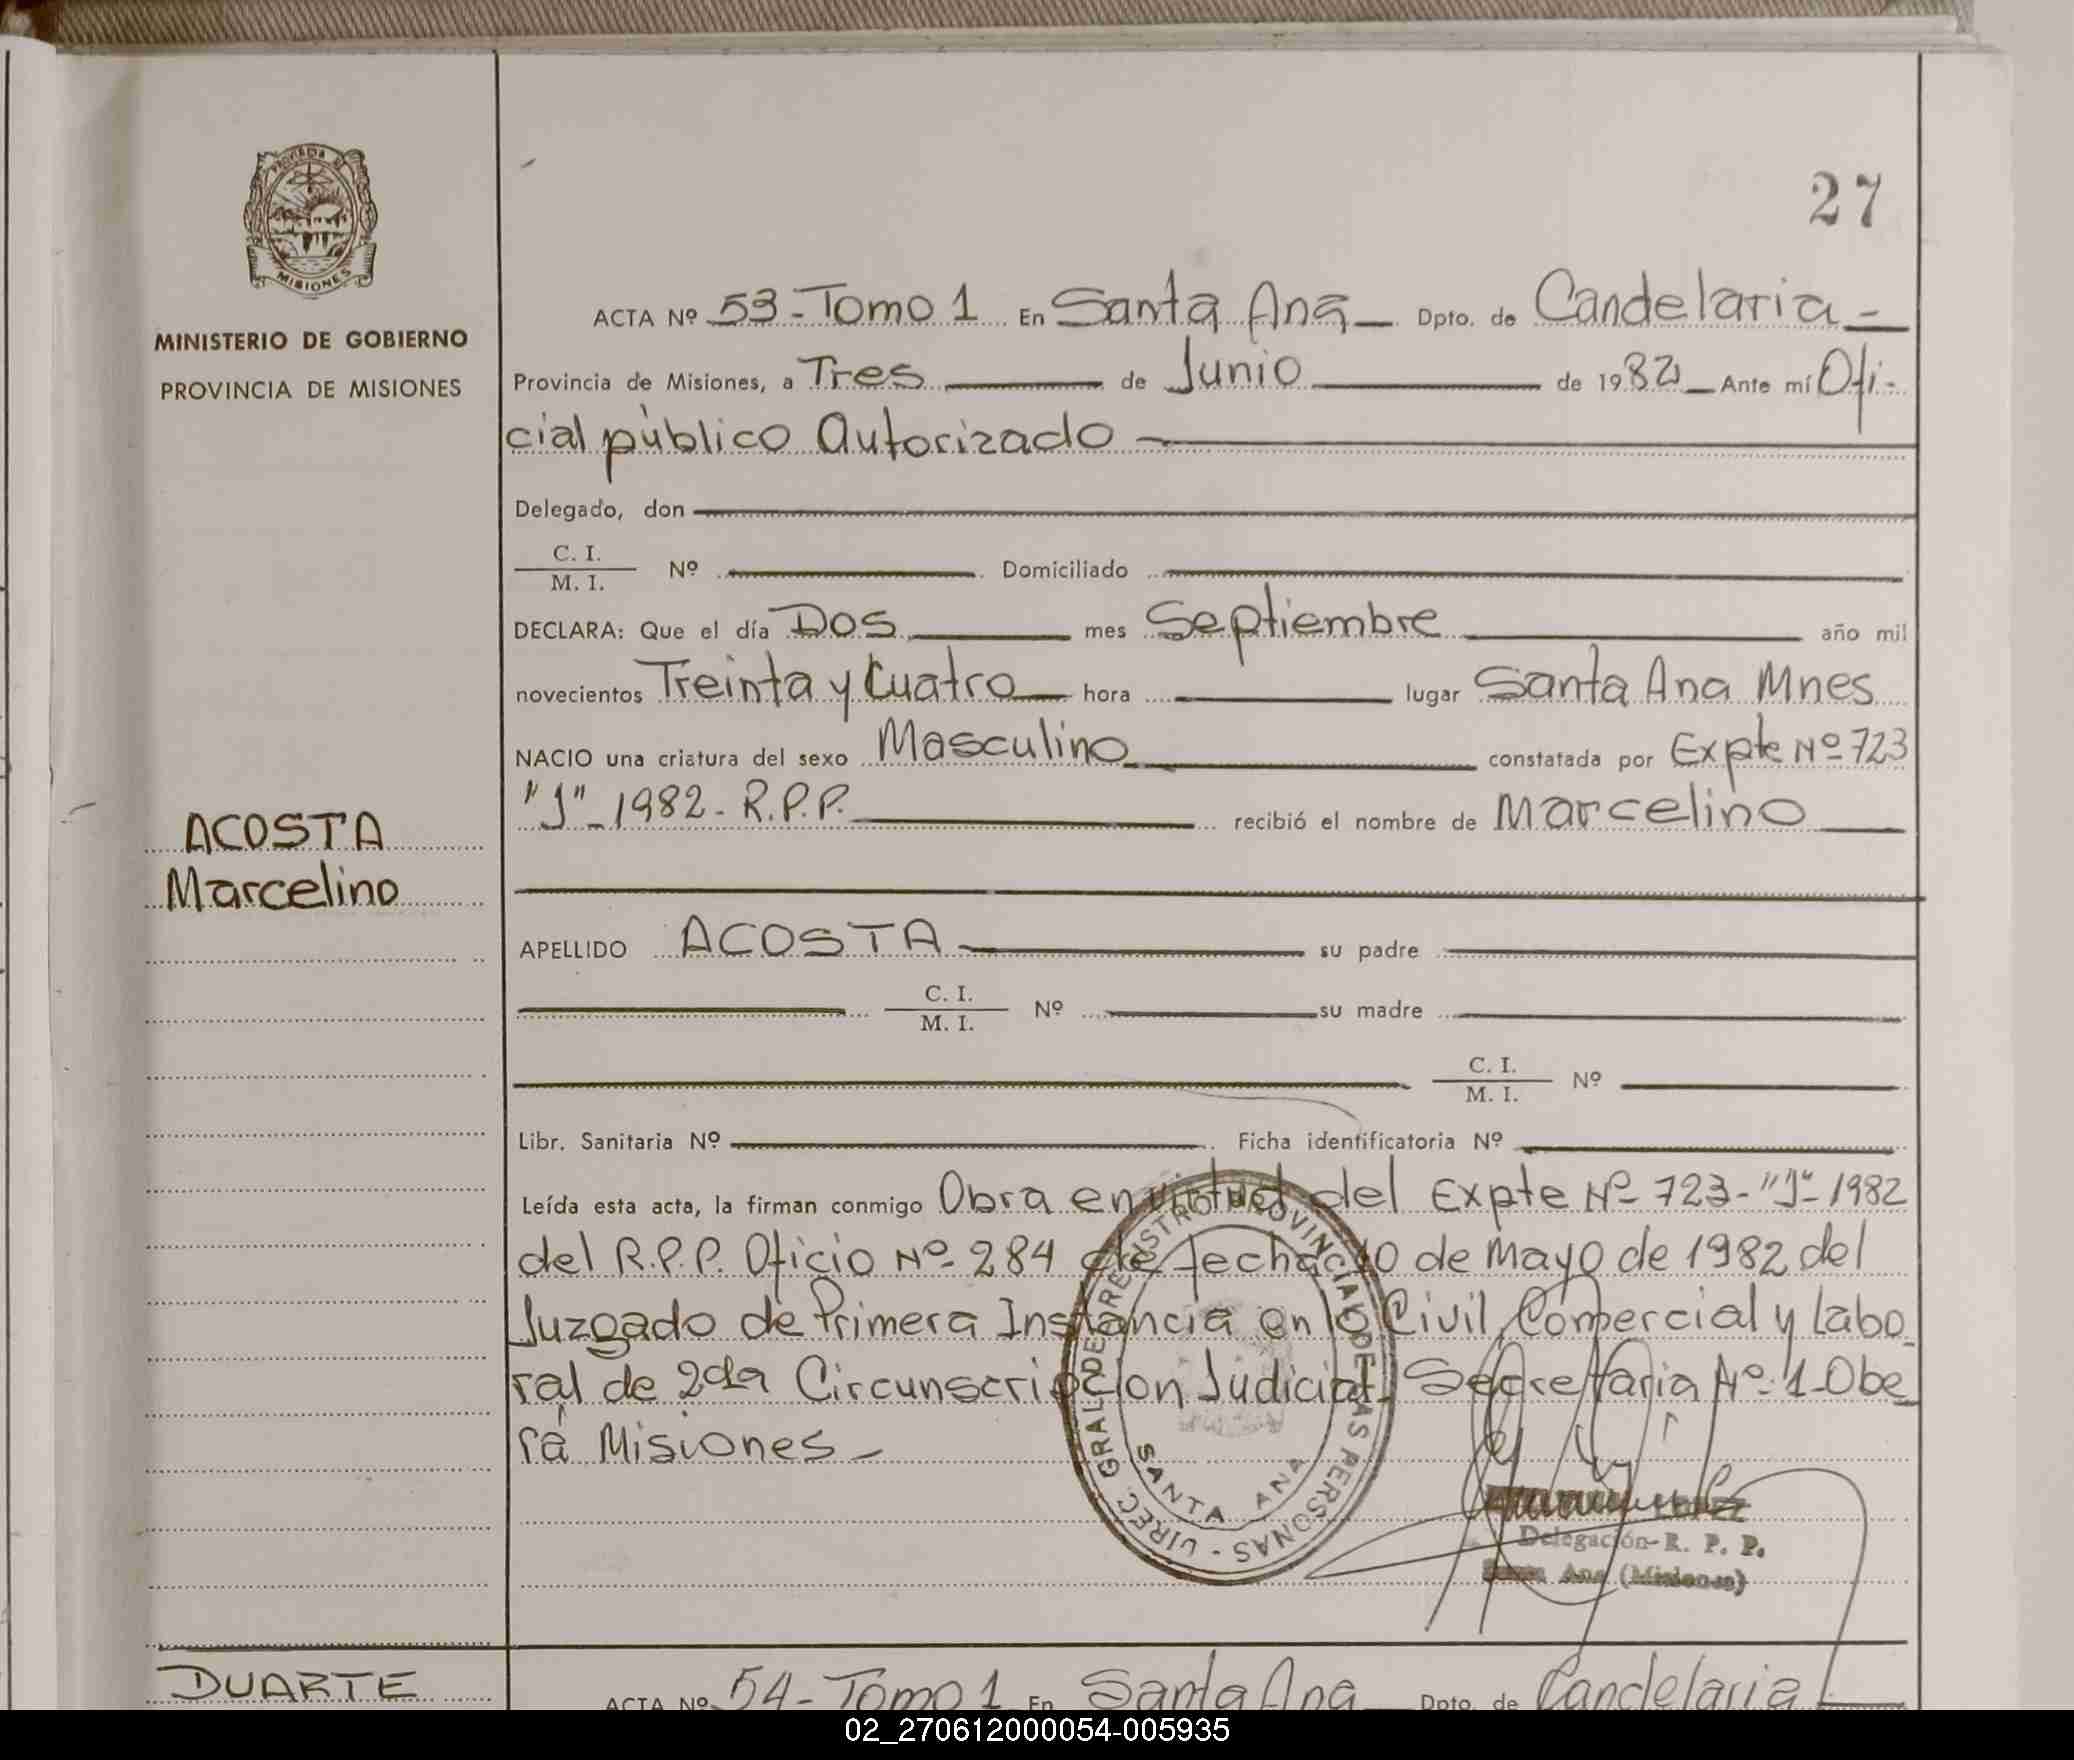 27
PROVINCIA DE
MISIONES
MINISTERIO DE GOBIERNO
PROVINCIA DE MISIONES
ACTA Nº 53-Tomo 1 En Santa Ana Dpto. de Candelaria-
Provincia de Misiones, a Tres de Junio de 1982 Ante mí Ofi-
cial público Autorizado
Delegado, don
C. I.
M. I. Nº Domiciliado
DECLARA: Que el día Dos mes Septiembre año mil
novecientos Treinta y Cuatro hora lugar Santa Ana Mnes
NACIO una criatura del sexo Masculino constatada por Expte Nº 723
"J"-1982-R.P.P. recibió el nombre de Marcelino
ACOSTA
Marcelino
APELLIDO ACOSTA su padre
C. I.
M. I. Nº su madre
C. I.
M. I. Nº
Libr. Sanitaria Nº Ficha identificatoria Nº
Leída esta acta, la firman conmigo Obra en virtud del Expte Nº 723-"J"-1982
del R.P.P. Oficio Nº 284 de fecha 10 de Mayo de 1982 del
Juzgado de Primera Instancia en lo Civil, Comercial y Labo-
ral de 2da Circunscripcion Judicial- Secretaria Nº-1-Obe-
rá Misiones-
DIREC. GRAL. DE REGISTRO PROVINCIAL DE LAS PERSONAS -
SANTA ANA
Delegación-R. P. P.
Santa Ana (Misiones)
DUARTE
ACTA Nº 54-Tomo 1 En Santa Ana Dpto. de Candelaria
02_270612000054-005935